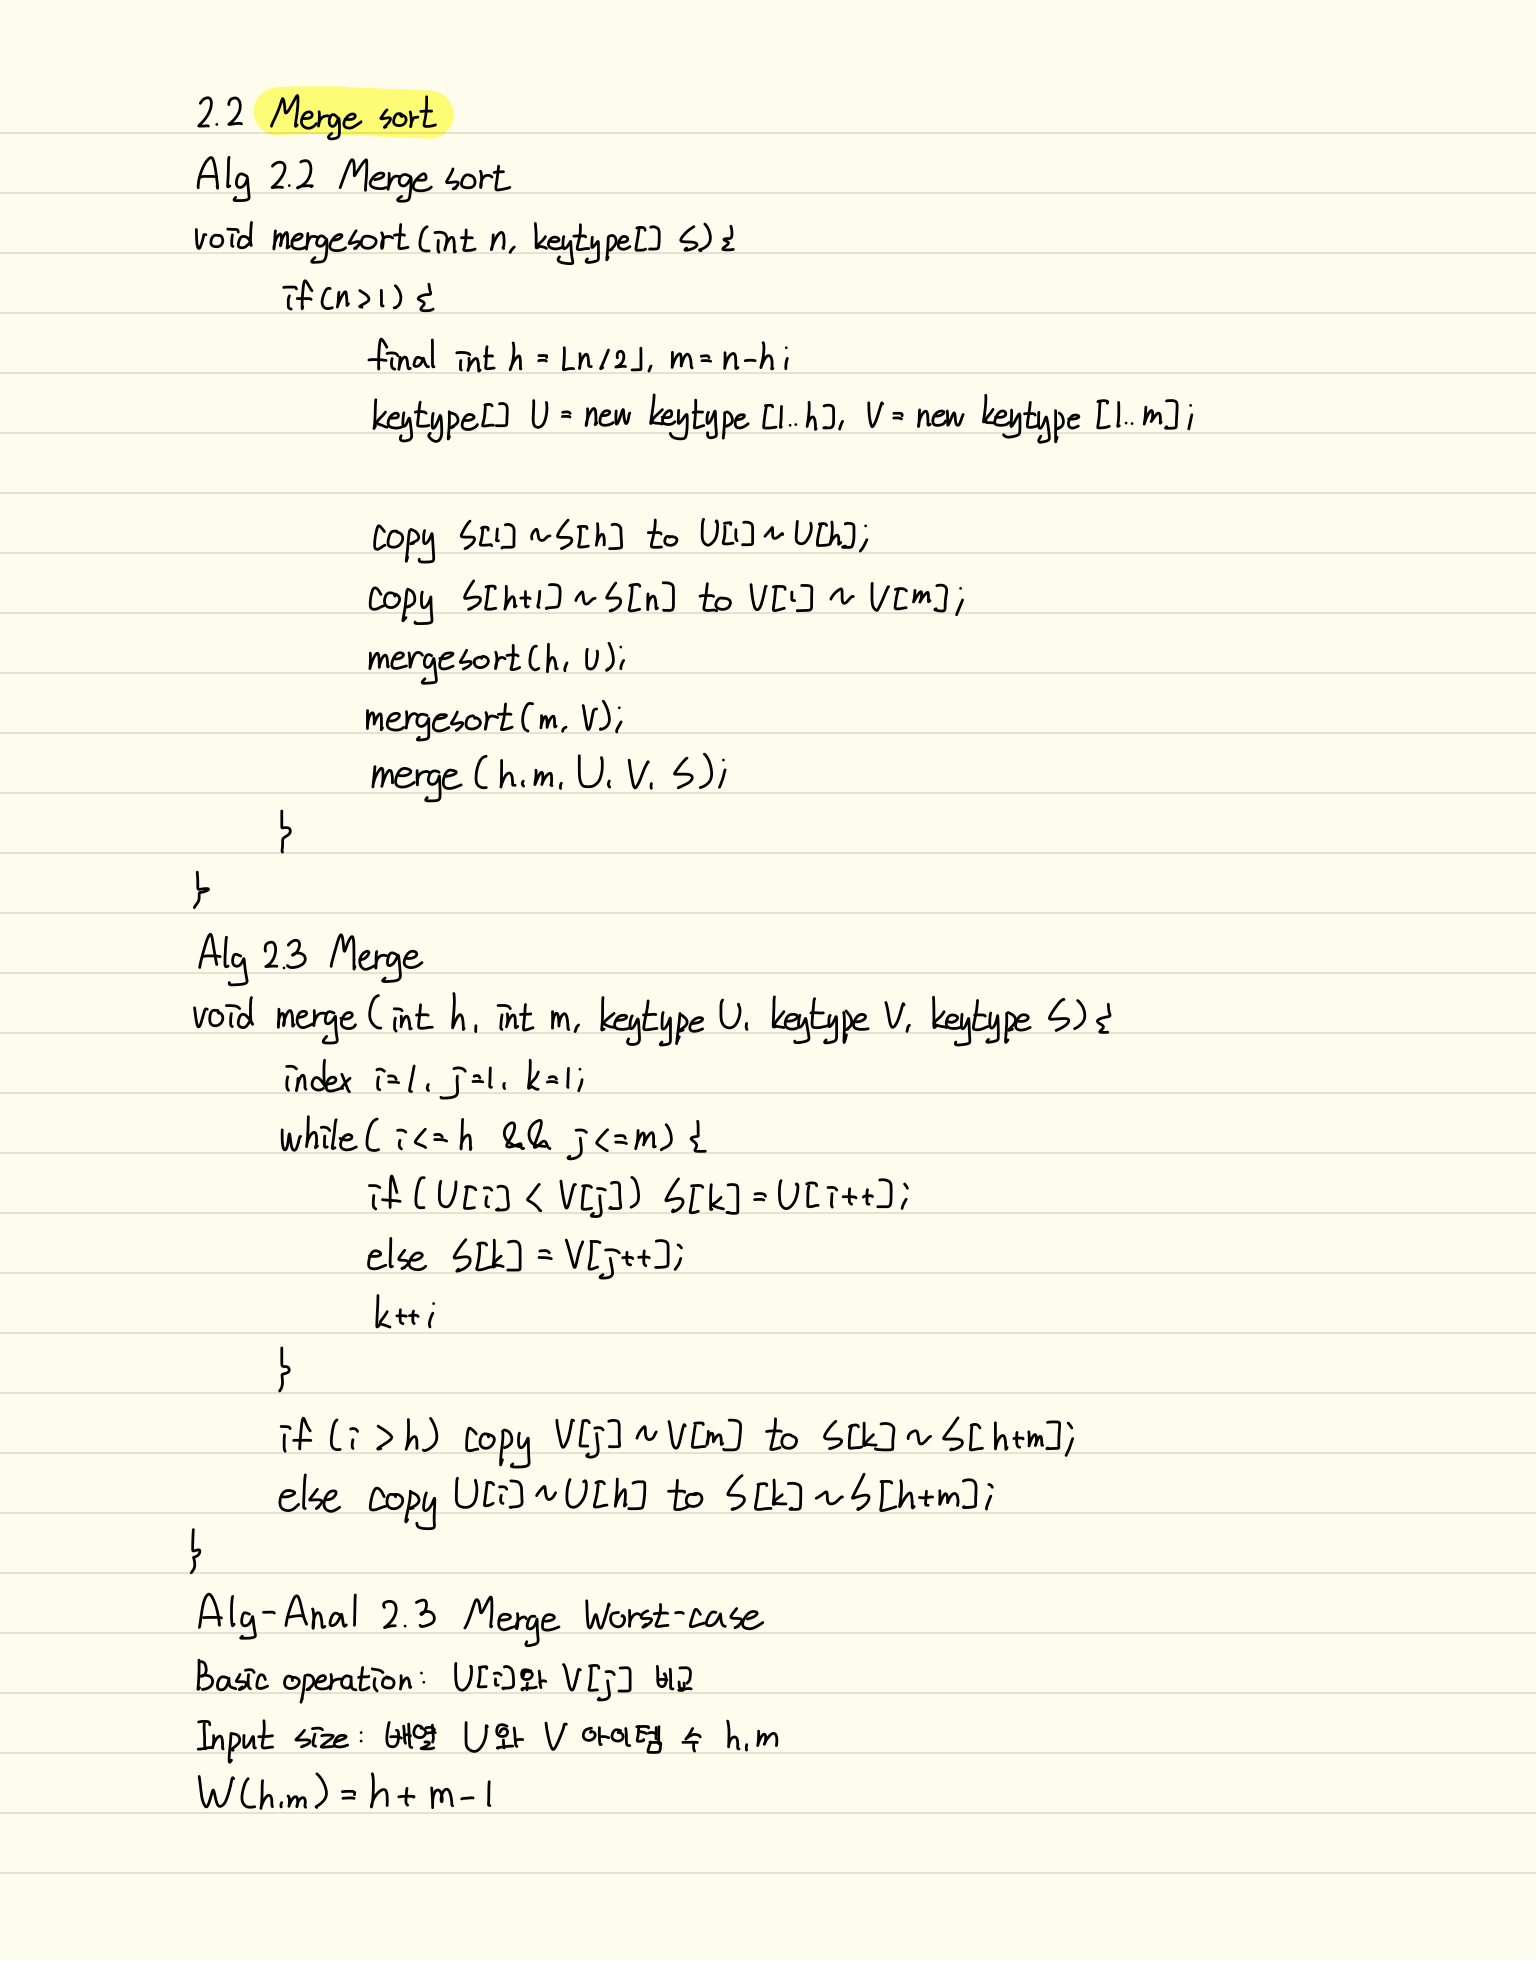 2.2 Merge sort
Alg 2.2 Merge sort
void mergesort(int n, keytype[] S){
if(n>1) {
final int h = ⌊n/2⌋, m=n-h;
keytype[] U = new keytype [1..h], V = new keytype [1..m];
copy S[1] ~ S[h] to U[1] ~ U[h];
copy S[h+1] ~ S[n] to V[1] ~ V[m];
mergesort(h, U);
mergesort(m, V);
merge (h, m, U, V, S);
}
}
Alg 2.3 Merge
void merge (int h, int m, keytype U, keytype V, keytype S) {
index i=1, j=1, k=1;
while( i<=h && j<=m) {
if( U[i] < V[j]) S[k] = U[i++];
else S[k] = V[j++];
k++;
}
if (i >h) copy V[j] ~ V[m] to S[k] ~ S[h+m];
else copy U[i] ~ U[h] to S[k] ~ S[h+m];
}
Alg-Anal 2.3 Merge Worst-case
Basic operation: U[i]와 V[j] 비교
Input size: 배열 U와 V 아이템 수 h, m
W(h,m) = h + m - 1